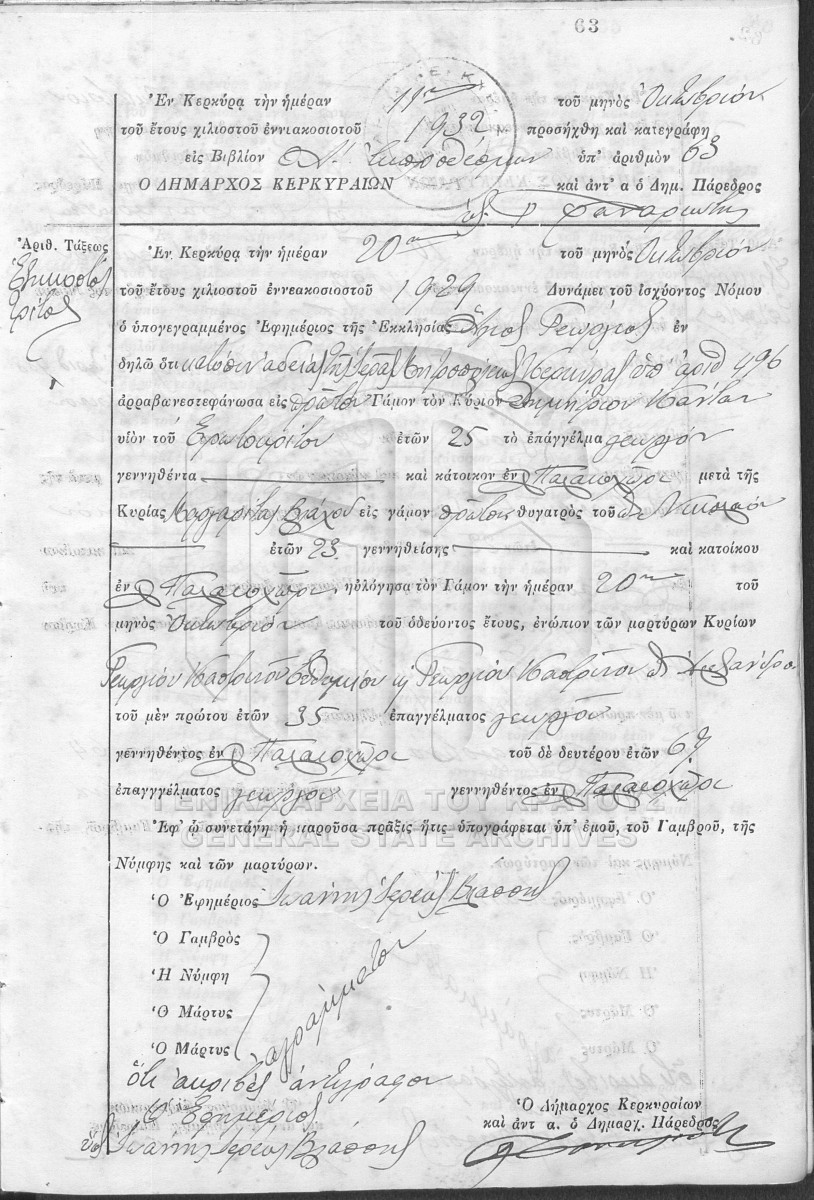 63
Ἐν Κερκύρᾳ τὴν ἡμέραν 11ην τοῦ μηνὸς Ὀκτωβρίου
τοῦ ἔτους χιλιοστοῦ ἐννιακοσιοτοῦ 1932 προσήχθη καὶ κατεγράφη
εἰς Βιβλίον Ἐκπροθέσμων ὑπ' ἀριθμὸν 63
Ο ΔΗΜΑΡΧΟΣ ΚΕΡΚΥΡΑΙΩΝ καὶ ἀντ' α ὁ Δημ. Πάρεδρος
Φαναριώτης
Ἀριθ. Τάξεως
Εἰκοστὸς
τρίτος
Ἐν Κερκύρᾳ τὴν ἡμέραν 20ην τοῦ μηνὸς Ὀκτωβρίου
τοῦ ἔτους χιλιοστοῦ ἐννεακοσιοστοῦ 1929 Δυνάμει τοῦ ἰσχύοντος Νόμου
ὁ ὑπογεγραμμένος Ἐφημέριος τῆς Ἐκκλησίας Ἅγιος Γεώργιος ἐν
δηλῶ ὅτι κατόπιν ἀδείας τῆς Ἱερᾶς Μητροπόλεως Κερκύρας ὑπ' ἀριθ 496
ἀρραβωνεστεφάνωσα εἰς πρῶτον Γάμον τὸν Κύριον Δημήτριον
υἱὸν τοῦ Ἐρωτοκρίτου ἐτῶν 25 τὸ ἐπάγγέλμα γεωργὸν
γεννηθέντα καὶ κάτοικον ἐν Παλαιοχῶρι μετὰ τῆς
Κυρίας Μαργαρίτας Βλάχου εἰς γάμον πρῶτον θυγατρὸς τοῦ Νικολάου
ἐτῶν 23 γεννηθείσης καὶ κατοίκου
ἐν Παλαιοχῶρι, ηὐλόγησα τὸν Γάμον τὴν ἡμέραν 20ην τοῦ
μηνὸς Ὀκτωβρίου τοῦ ὁδεύοντος ἔτους, ἐνώπιον τῶν μαρτύρων Κυρίων
Γεωργίου Καστρινοῦ Εὐθυμίου ἢ Γεωργίου Καστρινοῦ Ἀλεξάνδρου
τοῦ μὲν πρώτου ἐτῶν 35 ἐπαγγέλματος γεωργοῦ
γεννηθέντος ἐν Παλαιοχῶρι τοῦ δὲ δευτέρου ἐτῶν 67
ἐπαγγγέλματος γεωργοῦ γεννηθέντος ἐν Παλαιοχῶρι
ΓΕΝΙΚΑ ΑΡΧΕΙΑ ΤΟΥ ΚΡΑΤΟΥΣ
GENERAL STATE ARCHIVES
Ἐφ' ᾧ συνετάγη ἡ παροῦσα πρᾶξις ἥτις ὑπογράφεται ὑπ' ἐμοῦ, τοῦ Γαμβροῦ, τῆς
Νύμφης καὶ τῶν μαρτύρων.
Ὁ Ἐφημέριος Ἰωάννης Ἱερεὺς Βλάσσης
Ὁ Γαμβρὸς
Ἡ Νύμφη
Ὁ Μάρτυς
Ὁ Μάρτυς
ἀγράμματοι
ὅτι ἀκριβὲς ἀντίγραφον
Ὁ Ἐφημέριος
Ἰωάννης Ἱερεὺς Βλάσσης
Ὁ Δήμαρχος Κερκυραίων
καὶ ἀντ α. ὁ Δημαρχ. Πάρεδρος